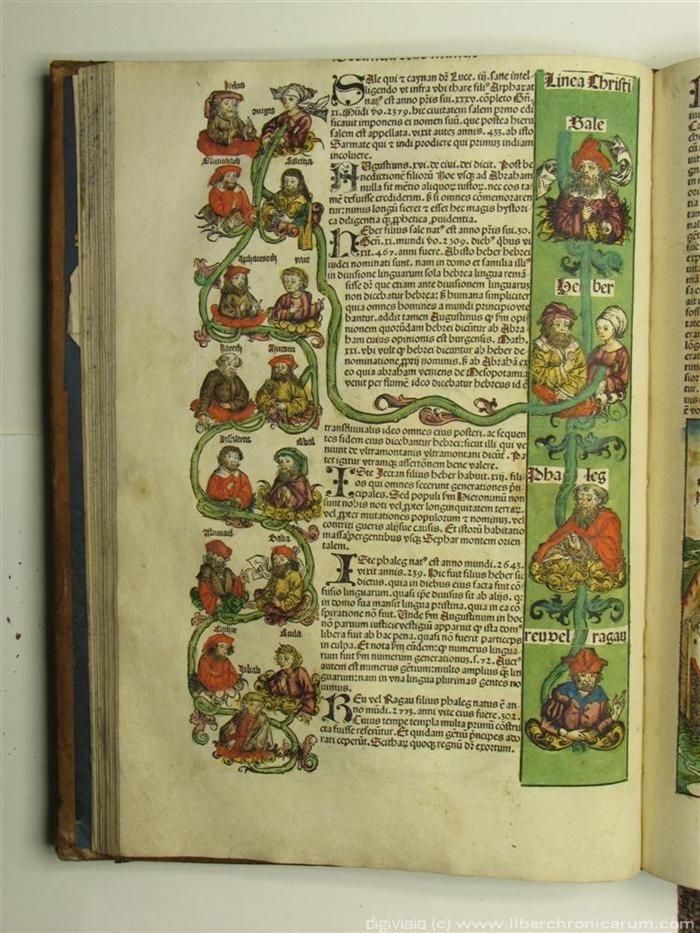 Linea Christi
Sale
Heber
Phaleg
reu vel ragau
Jectan
Saleina
Jarech
Abimael
Saba
Jobab
Sale qui & caynan dz Luce. iij. sane intel
ligendo vt infra vbi thare fili⁹ Arphaxat
nat⁹ est anno p̃ris sui. xxxv. cõpleto Gñ.
xi. Mũdi v̊o. 2379. hic ciuitatem salem primo edi
ficauit imponens ei nomen suũ. que postea hieru
salem est appellata. vixit autez annis. 433. ab isto
Sarmate qui & indi prodiere qui primuz indiam
incoluere.
Augustinus. xvi. de ciui. dei dicit. Post be
nedictionẽ filiorũ Noe vsqz ad Abraham
nulla fit mẽtio aliquor̃ iustor̃. nec eos ta
mẽ defuisse crediderim.
turː nimis longũ fieret & esset hec magis hystori
ca diligentia qz prophetica puidentia.
Heber filius sale nat⁹ est anno p̃ris sui. 30.
Gen̄. xi. mundi v̊o. 2309. dieb⁹ qbus vi
xit. 467. anni fuere. Absto heber hebrei
iudei nominati sunt. nam in domo et familia illi⁹
in diuisione linguarum sola hebrea lingua remã
sisse dz que etiam ante diuisionem linguarum
non dicebatur hebrea: sz humana simpliciter
quia omnes homines a mundi principio vte
bantur. addit tamen Augustinus
nionem quorũdam hebrei dicũtur ab Abra
ham cuius opinionis est burgensis. Math.
xxi. vbi vult qp hebrei dicuntur ab heber de
nominatione
eo quia abraham veniens de Mesopotamia
venit per flumẽ ideo dicebatur hebreus id ē
transfluuialis ideo omnes eius posteri. ac sequen
tes fidem eius dicebantur hebrei: sicut illi qui ve
niunt de vltramontanis vltramontani dicũt. Pa
tet igitur vtramqz assertõnem bene valere.
Iste Jectan filius heber habuit. xiij. fili
os qui omnes fecerunt generationes p̃n
cipales. Sed populi ẜm Hieronimũ non
sunt nobis noti vel ppter longinquitatem terrar̃.
vel ppter mutationes populorum & nominuz. vel
contriti gueris alijsue causis. Et istorũ habitatio
a massa pergentibus vsqz Sephar montem orien
talem.
Iste phaleg nat⁹ est anno mundi. 2643.
vixit annis. 239. Hic fuit filius heber sic
dictus. quia in diebus eius facta fuit con
fusio linguarum. quasi ipe diuisus sit ab alijs. qz
in domo sua mansit lingua pristina. quia in ea cõ
spiratione nõ fuit. Unde ẜm Augustinum in hoc
nõ paruum iusticie vestigiũ apparuit qp ista dom⁹
libera fuit ab hac pena. quasi nõ fuerit particeps
in culpa. Et nota ẜm eũdem: qp numerus lingua
rum fuit ẜm numerum generationuz. s. 72. Auct⁹
autem est numerus gẽtium: multo amplius qz lin
guarum: nam in vna lingua plurimas gentes no
uimus.
Reu vel Ragau filius phaleg natus ē an
no mũdi. 2773. anni vite eius fuere. 302.
Cuius tempe templa multa primũ cõstru
cta fuisse referũtur. Et quidam gẽtiũ p̃ncipes ado
rari ceperũt. Scithar̃ quoqz regnũ dr̃ exortum.
digivisio (c) www.liberchronicarum.com